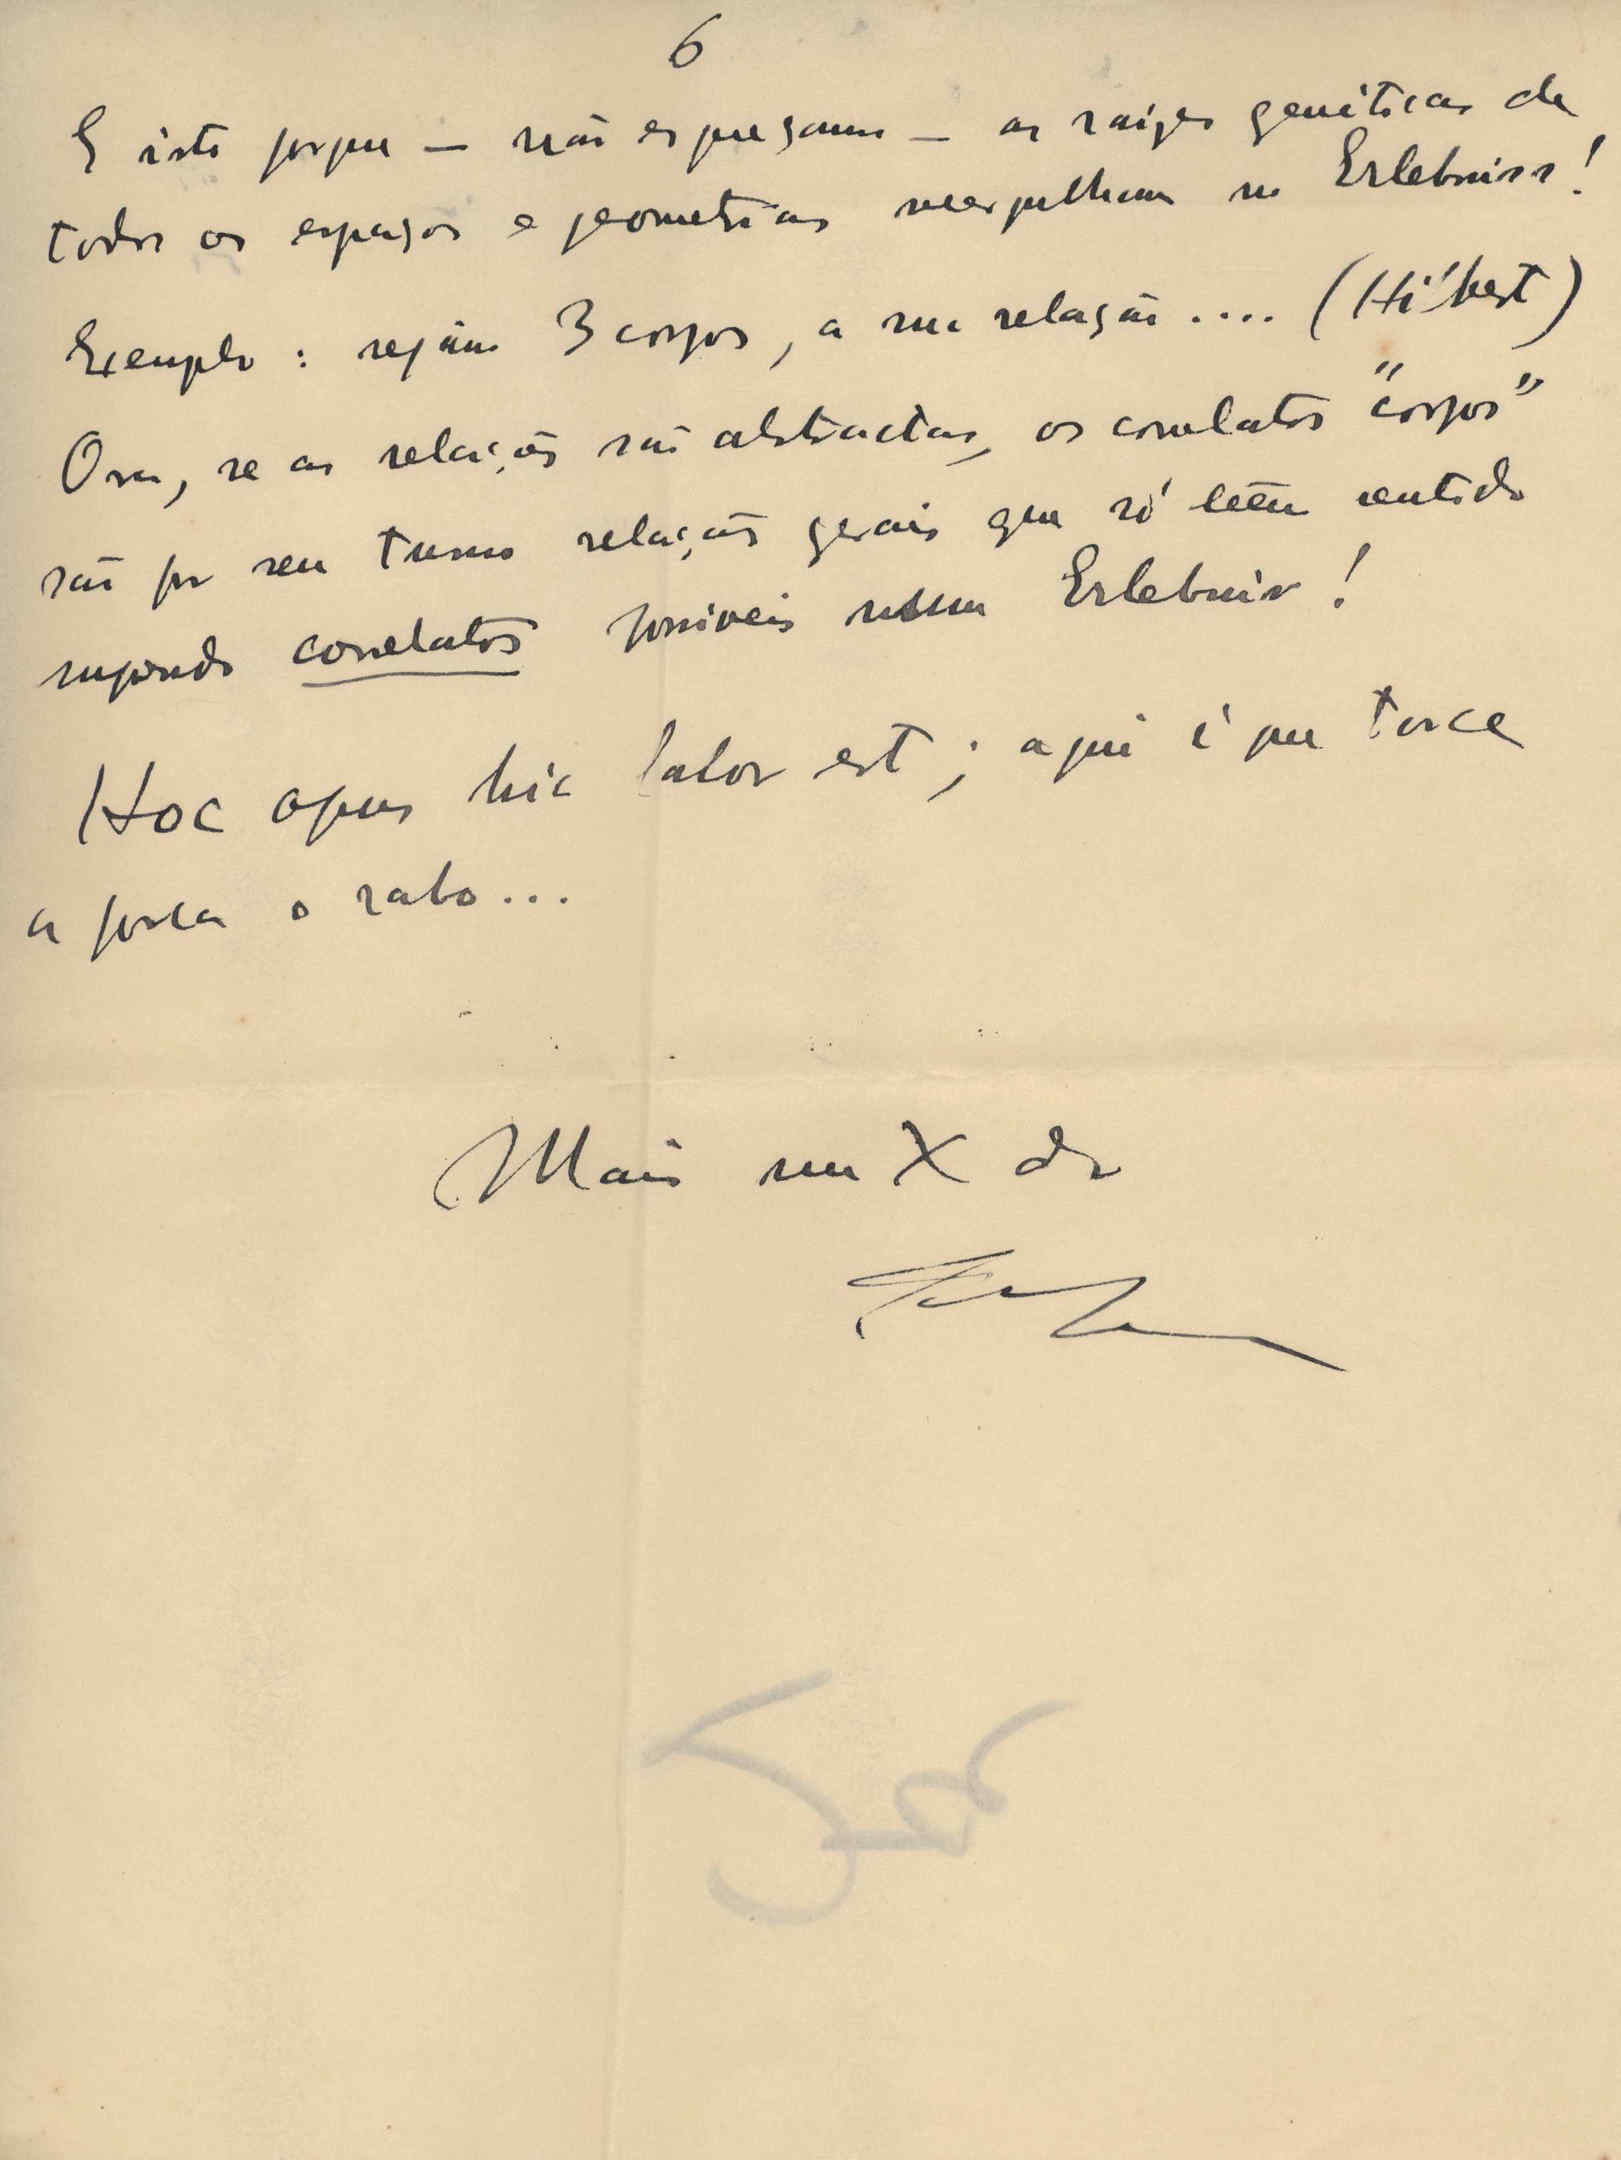 6
E isto porque — não esqueçamos — as raízes genéticas de
todos os espaços e geometrias mergulham no Erlebniss!
Exemplo: sejam 3 corpos, a sua relação.... (Hilbert)
Ora, se as relações são abstractas, os correlatos "corpos"
são por seu turno relações gerais que só teem sentido
supondo correlatos possiveis num Erlebnis!
Hoc opus hic labor est; aqui é que torce
a porca o rabo...
Mais um X do